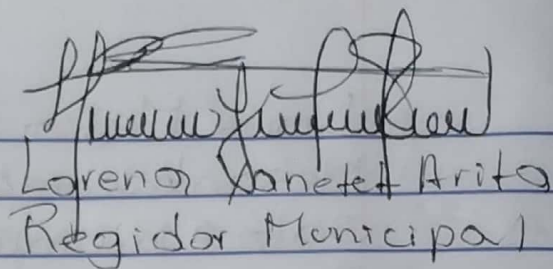 Lorena Yaneteh Arita
Regidor Municipal